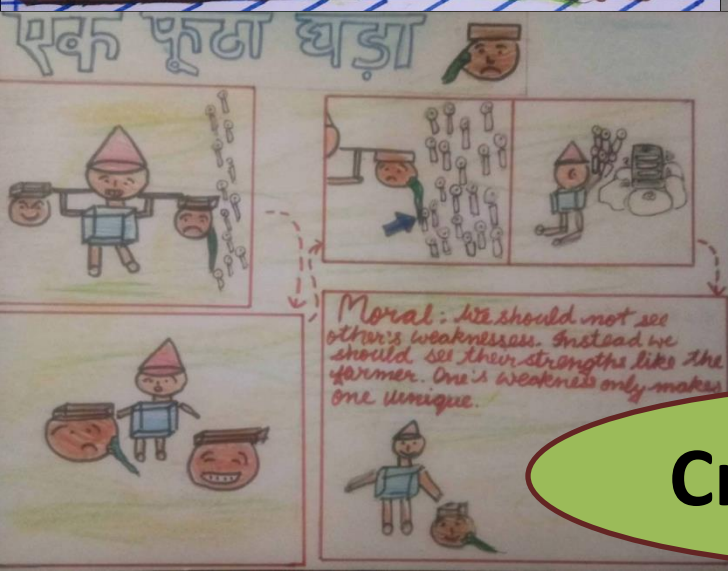 एक फूटा घड़ा
Moral: We should not see
other's weaknessess. Instead we
should see their strengths like the
farmer. One's weakness only makes
one uunique.